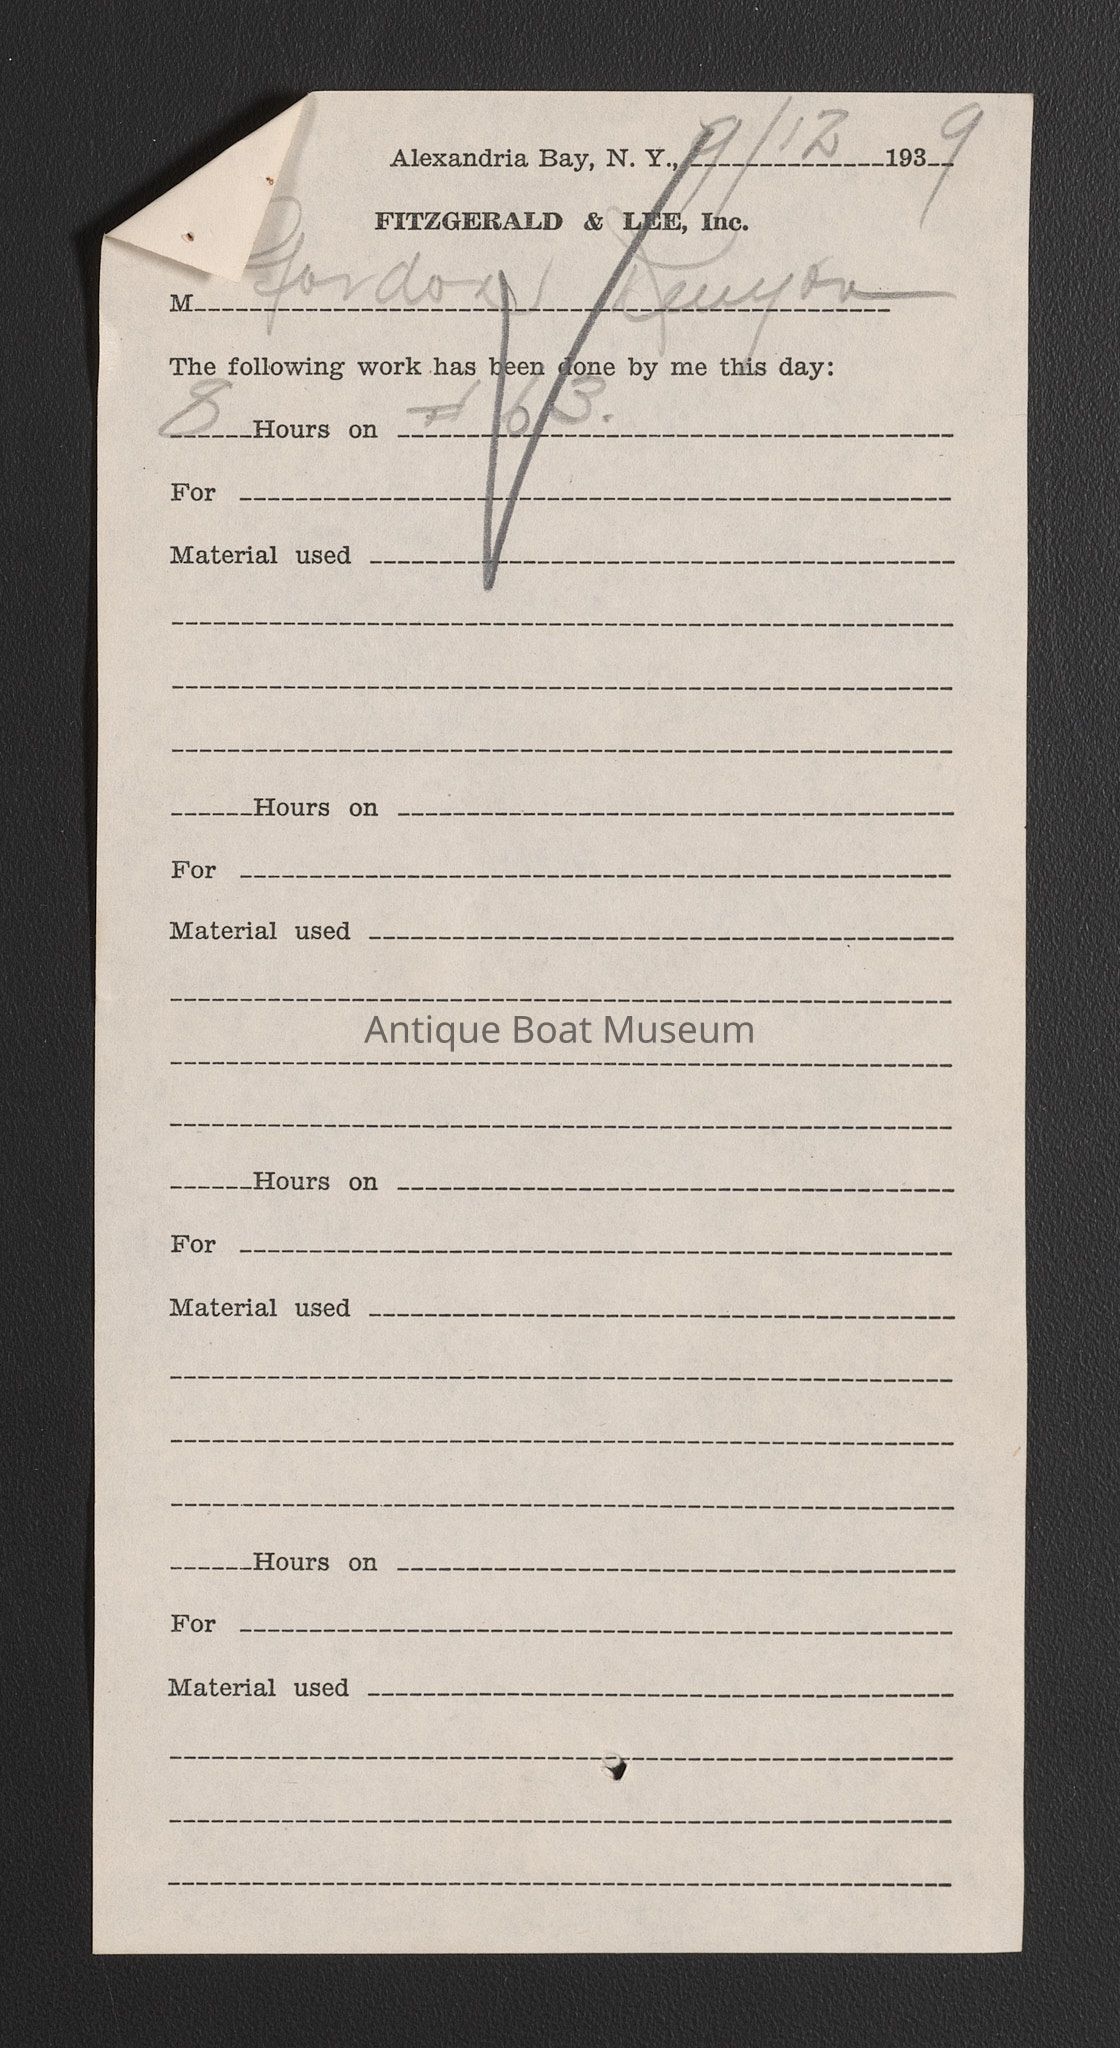 Alexandria Bay, N. Y., 9/12 1939
FITZGERALD & LEE, Inc.
M Gordon Runyon
The following work has been done by me this day:
8 Hours on # 63.
For
Material used
Hours on
For
Material used
Antique Boat Museum
Hours on
For
Material used
Hours on
For
Material used